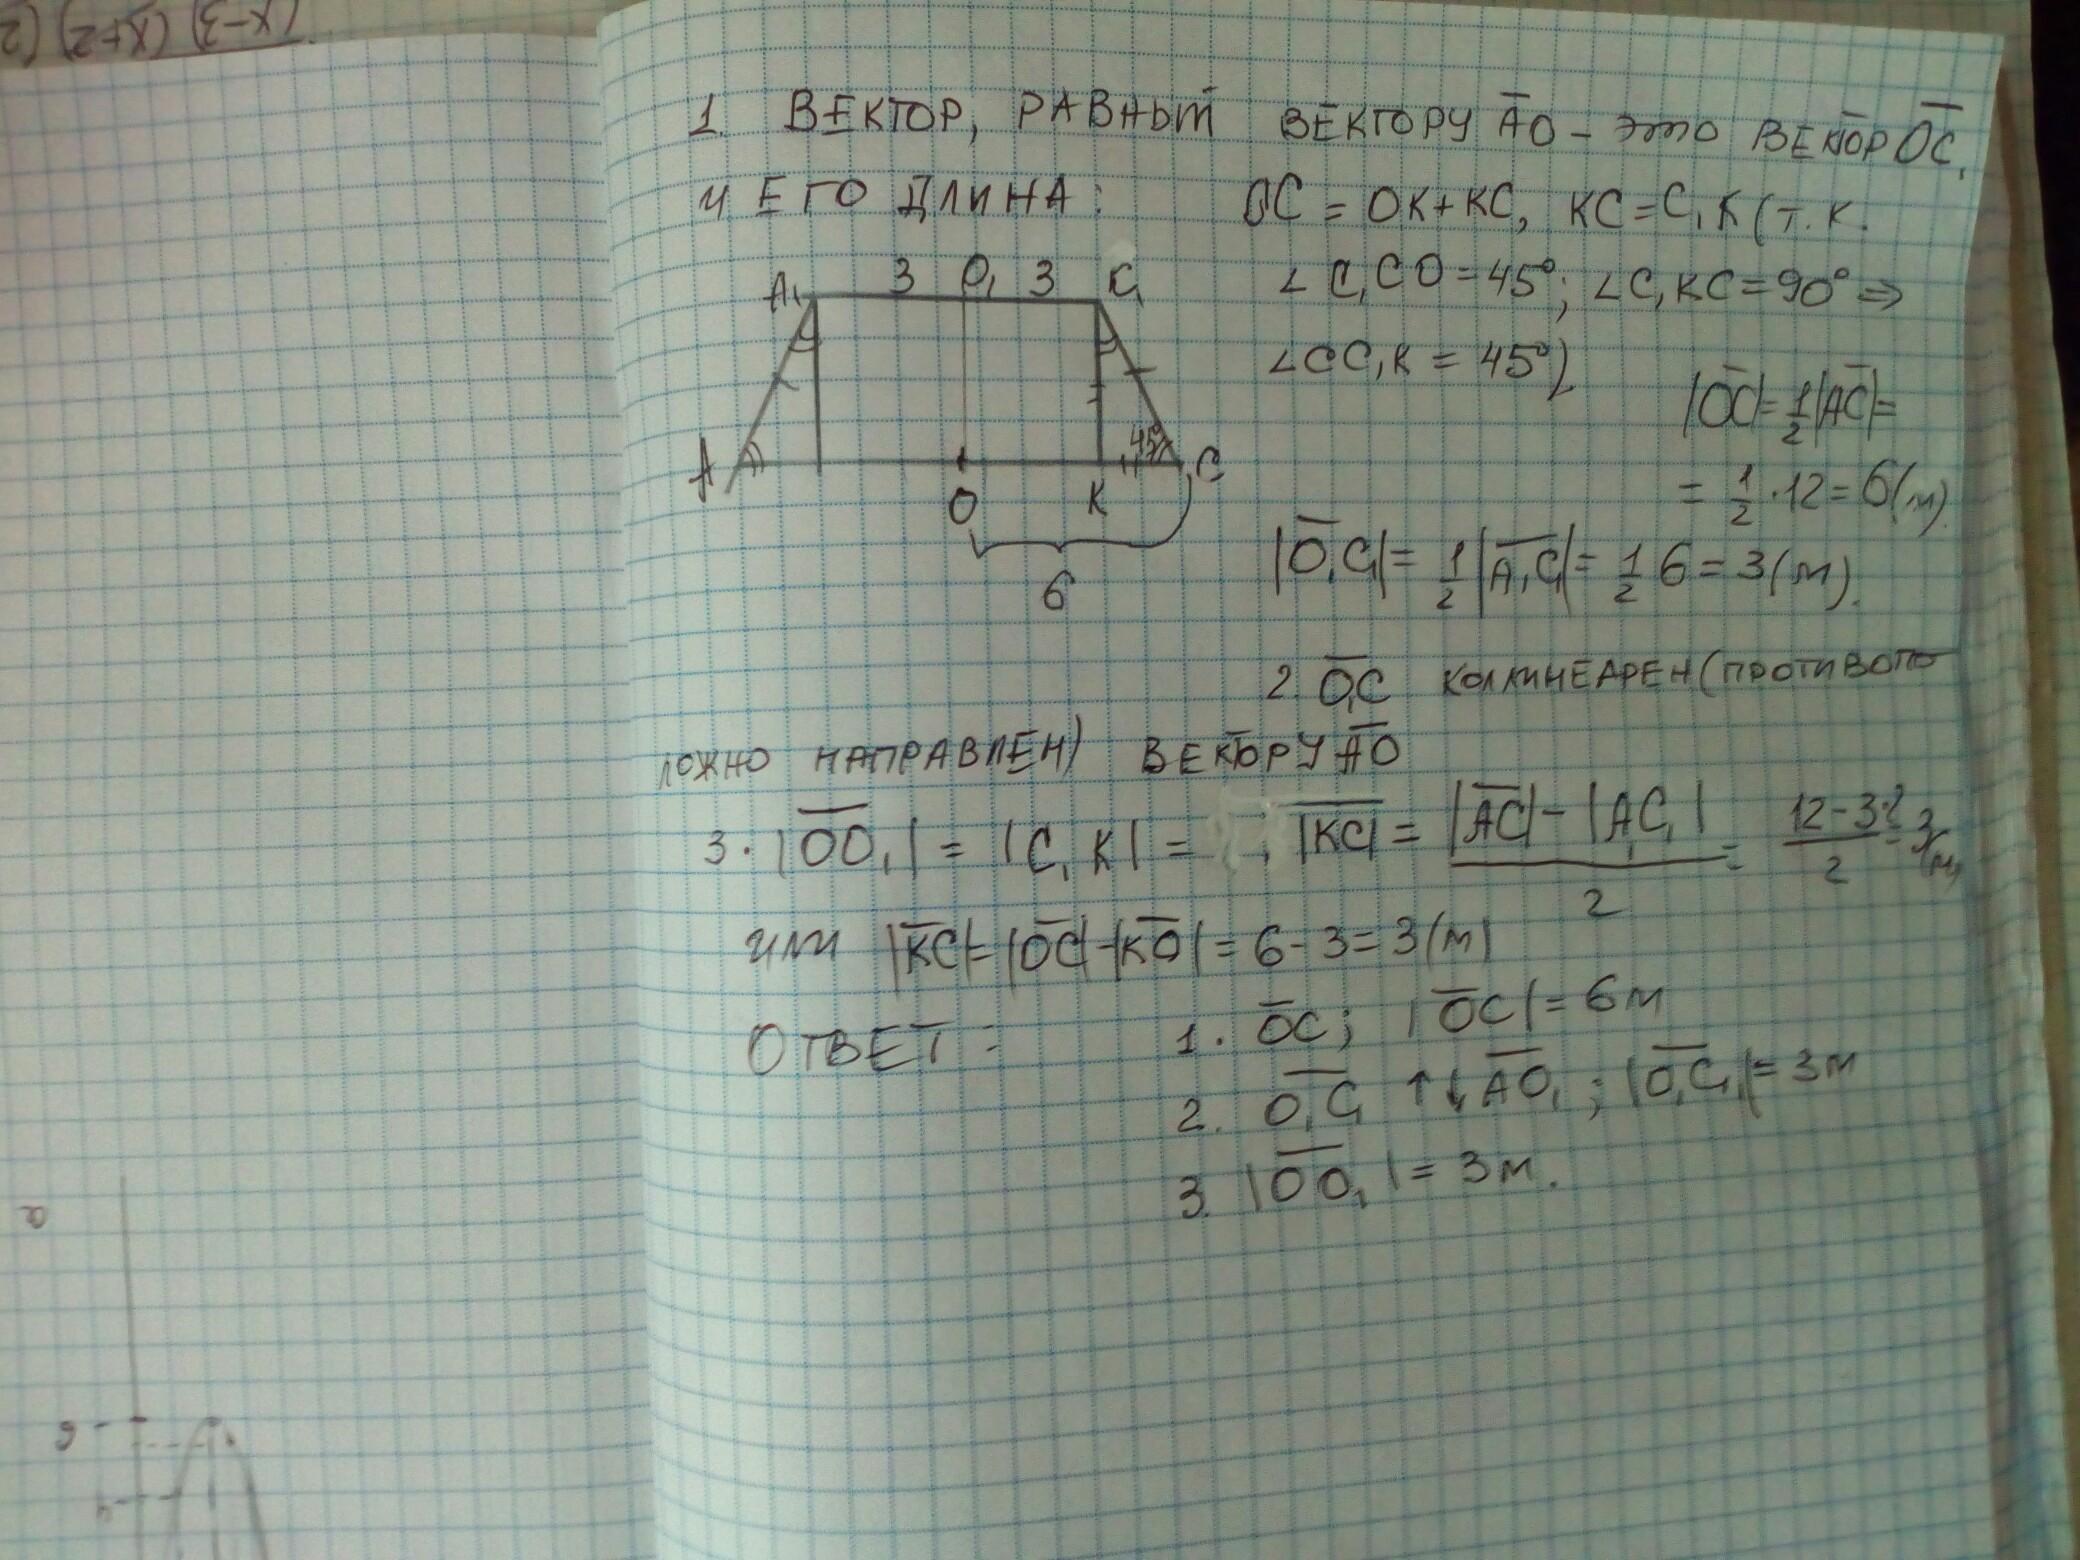 (x-3) (x+2) (2
1. ВЕКТОР, РАВНЫЙ ВЕКТОРУ A̅O̅ - это ВЕКТОР O̅C̅,
И ЕГО ДЛИНА: OC = OK + KC, KC = C₁K (т.к.
∠C₁CO = 45°; ∠C₁KC = 90° ⇒
∠CC₁K = 45°)
A₁ 3 O₁ 3 C₁
45°
A O K C
6
|O̅C̅| = 1/2 |A̅C̅| =
= 1/2 · 12 = 6 (м).
|O̅₁C̅₁| = 1/2 |A̅₁C̅₁| = 1/2 6 = 3 (м).
2. O̅₁C̅ КОЛЛИНЕАРЕН (ПРОТИВОПО
ЛОЖНО НАПРАВЛЕН) ВЕКТОРУ A̅O̅
3. |O̅O̅₁| = |C₁K| = , |K̅C̅| = (|A̅C̅| - |A₁C₁|)/2 = (12 - 3·2)/2 = 3 (м)
или |K̅C̅| = |O̅C̅| - |K̅O̅| = 6 - 3 = 3 (м)
ОТВЕТ: 1. O̅C̅; |O̅C̅| = 6 м
2. O̅₁C̅₁ ↑↓ A̅O̅₁; |O̅₁C̅₁| = 3 м
3. |O̅O̅₁| = 3 м.
a
6
4